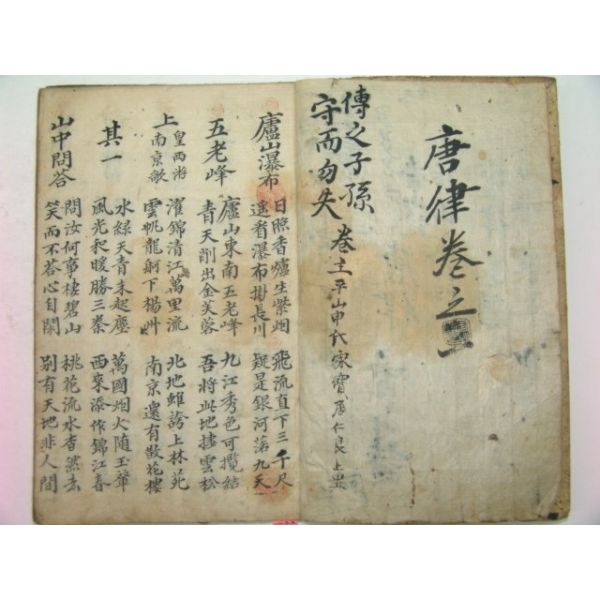 唐律卷之
傳之子孫
守而勿失
卷主平山申氏家寶
廬山瀑布
日照香爐生紫烟
遙看瀑布掛長川
飛流直下三千尺
疑是銀河落九天
五老峰
廬山東南五老峰
青天削出金芙蓉
九江秀色可攬結
吾將此地捿雲松
上皇西巡南京歌
濯錦清江萬里流
雲帆龍舸下楊州
北地雖誇上林苑
南京還有散花樓
其一
水綠天青未起塵
風光和暖勝三秦
萬國烟火隨玉輦
西來添作錦江春
山中問答
問汝何事棲碧山
笑而不答心自閑
桃花流水杳然去
別有天地非人間